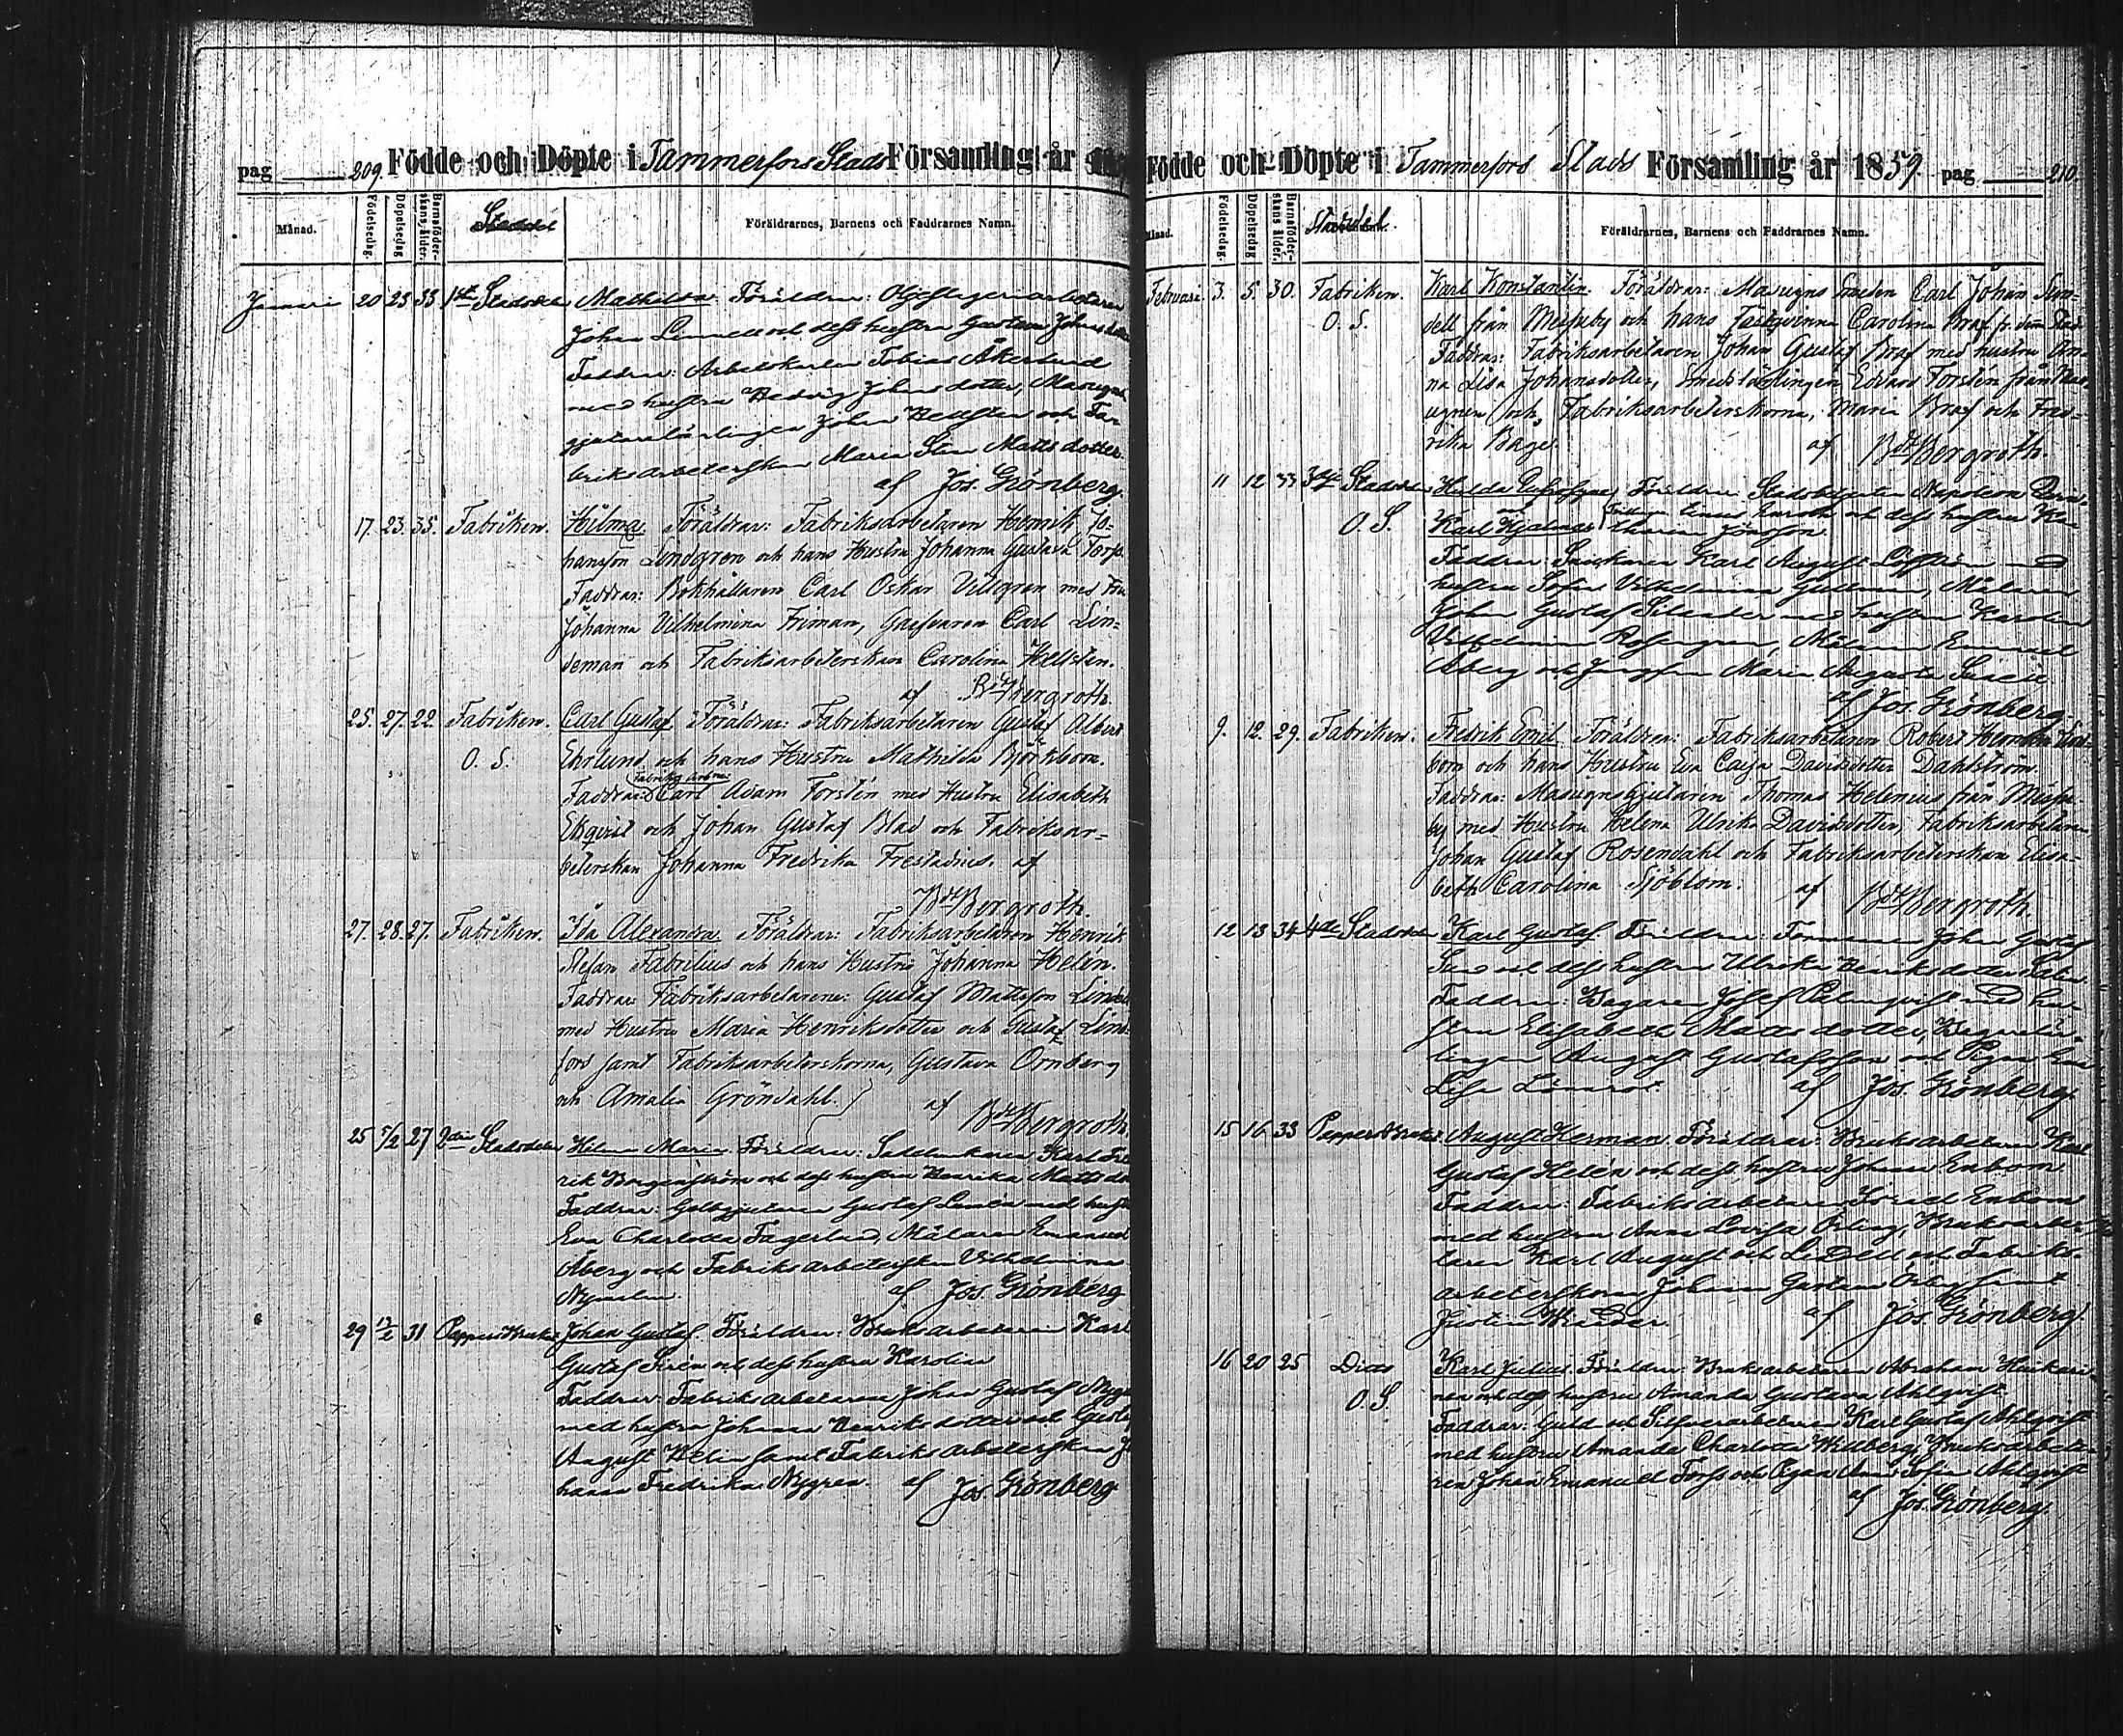 pag 209. Födde och Döpte i Tammerfors Stads Församling år
Månad. Födelsedag. Döpelsedag Barnaföderskans ålder. Stadsdel Föräldrarnes, Barnens och Faddrarnes Namn.
Januari 20 23 33 1sta Stadsdelen Mathilda. Föräldrar: Oljeslageriarbetaren
Johan Lennell och dess hustru Gustava Johansdotter
Faddrar: Arbetskarlen Tobias Åkerlund
med hustru Hedvig Johansdotter, Masugns
gjutarelärlingen Johan Hellsten och Fa-
briksarbeterskan Maria Stina Mattsdotter
af Jos. Grönberg.
17. 23. 35. Fabriken. Hilma. Föräldrar: Fabriksarbetaren Henrik Jo-
hansson Lindgren och hans Hustru Johanna Gustava Forss.
Faddrar: Bokhållaren Carl Oskar Villgren med Fru
Johanna Vilhelmina Friman, Garfvaren Carl Lin-
deman och Fabriksarbeterskan Carolina Hellsten.
af Bdt Bergroth.
25. 27. 22. Fabriken. Carl Gustaf. Föräldrar: Fabriksarbetaren Gustaf Albert
O. S. Ehrlund och hans Hustru Mathilda Björkbom.
Fabriks arbne:
Faddrar: Carl Adam Forstén med Hustru Elisabeth
Ekqvist och Johan Gustaf Blad och Fabriksar-
beterskan Johanna Fredrika Frestadius. af
Bdt Bergroth.
27. 28. 27. Fabriken. Ida Alexandra. Föräldrar: Fabriksarbetaren Henrik
Stefan Fabrilius och hans Hustru Johanna Helen.
Faddrar: Fabriksarbetarene: Gustaf Mattsson
med Hustru Maria Henriksdotter och Gustaf Lind-
fors samt Fabriksarbeterskorna, Gustava Ornberg
och Amalia Gröndahl. af
Bdt Bergroth.
25 5/2 27 2dra Stadsdelen Hilma Maria. Föräldrar: Sadelmakaren Karl Fred-
rik Borgenström och dess hustru Henrika Matts
Faddrar: Gelbgjutaren Gustaf Lemón med hustru
Eva Charlotta Fagerlund, Målaren Emanuel
Åberg och Fabriksarbeterskan Vilhelmina
af Jos. Grönberg
29 12/2 31 Pappersbruket Johan Gustaf. Föräldrar: Bruksarbetaren Karl
Gustaf Sirén och dess hustru Karolina
Faddrar: Fabriksarbetaren Johan Gustaf
med hustru Johanna Henriksdotter och Gustaf
August Helin samt Fabriksarbeterskan Jo
hanna Fredrika Nygren. af Jos. Grönberg
Födde och Döpte i Tammerfors Stads Församling år 1859. pag 210.
Månad. Födelsedag. Döpelsedag Barnaföderskans ålder. Stadsdel. Föräldrarnes, Barnens och Faddrarnes Namn.
Februari. 3. 5. 30. Fabriken. Karl Konstantin. Föräldrar: Masugns Smeden Carl Johan Sun-
O. S. dell från Messuby och hans Fästqvinna Carolina Braf
Faddrar: Fabriksarbetaren Johan Gustaf Braf med hustru An-
na Lisa Johansdotter, Smedslärlingen Edvard Forstén från Mas-
ugnen och Fabriksarbeterskorna, Maria Braf och Fred-
rika Båge. af Bdt Bergroth.
11 12 33 3dje Stadsdelen Hulda Eufrosyne Föräldrar: Stadsbetjenten Napoleon
O. S. Karl Hjalmar och dess hustru Ka-
tharina Jönsson.
Faddrar: Karl August Löfström med
hustru Sofia Vilhelmina Gullman, Målaren
Johan Gustaf Silander med hustru Karolina
Vilhelmina Rosengren, Målaren Emanuel
Åberg och Jungfru Maria Augusta
af Jos. Grönberg.
9. 12. 29. Fabriken. Fredrik Emil. Föräldrar: Fabriksarbetaren Robert Herman
bom och hans Hustru Eva Caisa Davidsdotter Dahlström.
Faddrar: Masugnsgjutaren Thomas Helenius från Messu-
by med Hustru Helena Ulrika Davidsdotter, Fabriksarbetaren
Johan Gustaf Rosendahl och Fabriksarbeterskan Elisa-
beth Carolina Sjöblom. af Bdt Bergroth.
12 13 34 4de Stadsdelen Karl Gustaf. Föräldrar: Formannen Johan Gustaf
och dess hustru Ulrika Henriksdotter
Faddrar: Bagaren Josef Palmqvist med hu-
stru Elisabeth Mattsdotter,
lingen August Gustafsson och Pigan
Lisa Lönnrot. af Jos. Grönberg.
15 16 33 Pappersbruket. August Herman. Föräldrar: Bruksarbetaren Karl
Gustaf Helén och dess hustru Johanna Enbom
Faddrar: Fabriksarbetaren Enbom
med hustru Anna Lovisa Örling, Bruksarbe-
taren Karl August och Lidell och Fabriks-
arbeterskorna Johanna Gustava samt
af Jos. Grönberg.
16 20 25 Ditto Karl Julius. Föräldrar: Bruksarbetaren Abraham
O. S. nen och dess hustru Amanda Gustava Ahlqvist
Faddrar: Guld och Silfverarbetaren Karl Gustaf Ahlqvist
med hustru Amanda Charlotta Widberg, Bruksarbeta-
ren Johan Emanuel Forss och Pigan Anna Sofia Ahlqvist
af Jos. Grönberg.